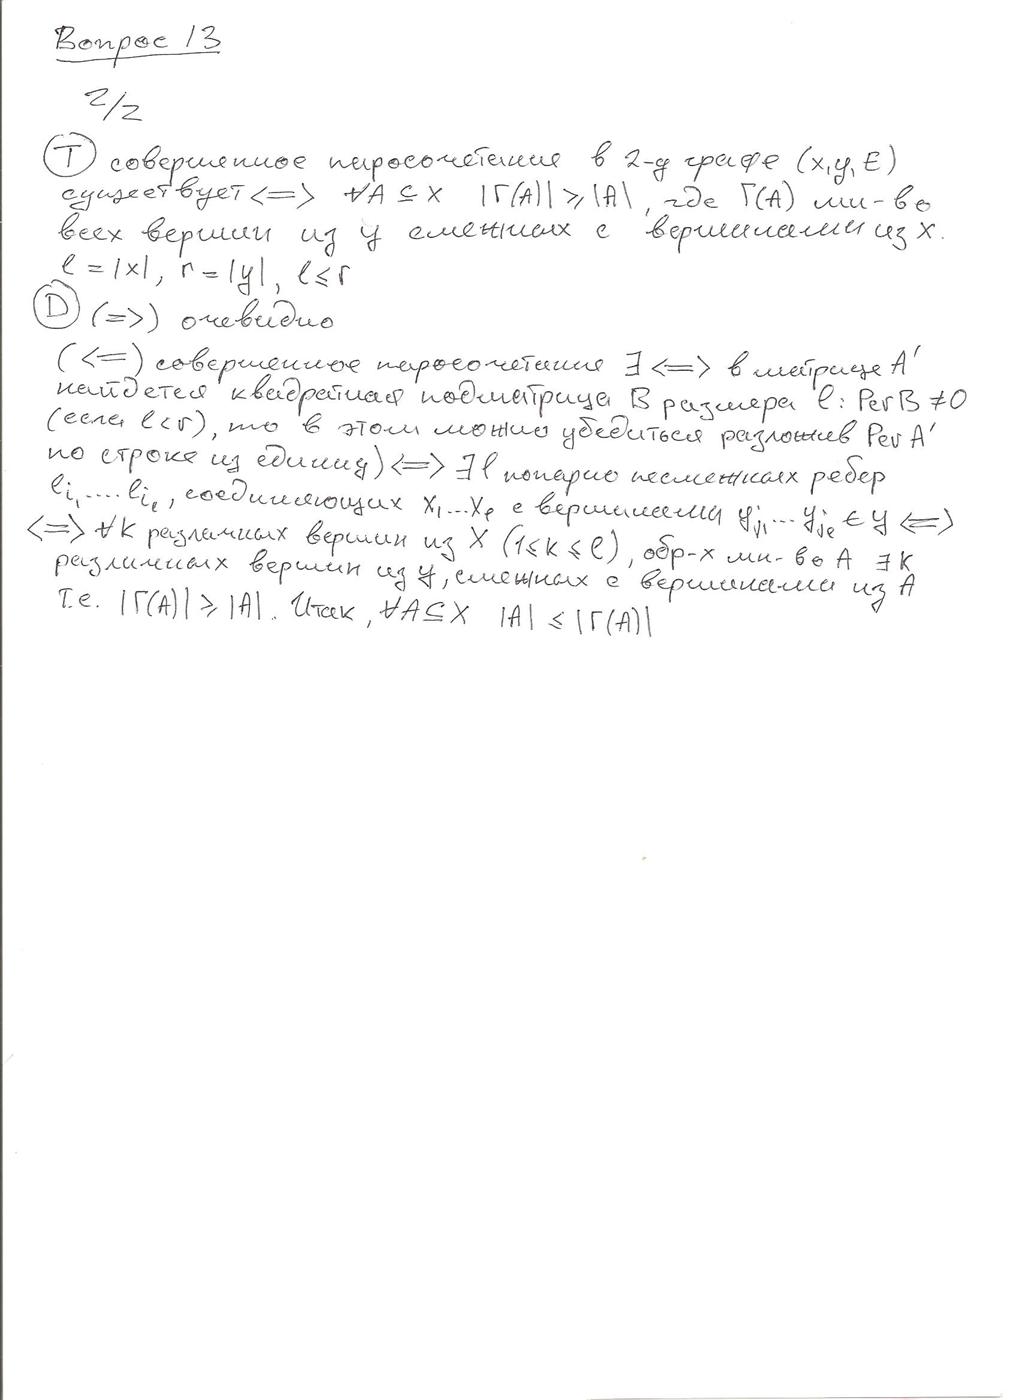 Вопрос 13
2/2
(Т) совершенное паросочетание в 2-д графе (x,y,E)
существует <=> ∀A ⊆ X |Г(A)| ≥ |A|, где Г(A) мн-во
всех вершин из y смежных с вершинами из x.
l = |x|, r = |y|, l ≤ r
(D) (=>) очевидно
(<=) совершенное паросочетание ∃ <=> в матрице A'
найдется квадратная подматрица B размера l: Per B ≠ 0
(если l < r), то в этом можно убедиться разложив Per A'
по строке из единиц) <=> ∃ l попарно несмежных ребер
li₁, .... liₑ, соединяющих x₁...xₑ с вершинами yj₁...yjₑ ∈ y <=>
<=> ∀k различных вершин из X (1 ≤ k ≤ l), обр-х мн-во A ∃ k
различных вершин из y, смежных с вершинами из A
т.е. |Г(A)| ≥ |A|. Итак, ∀A ⊆ X |A| ≤ |Г(A)|